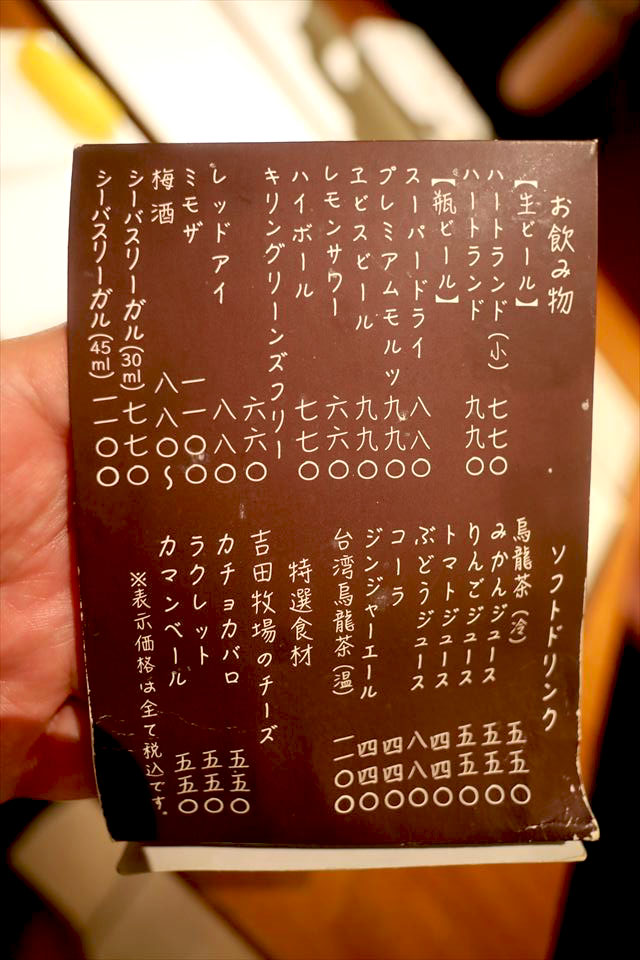 お飲み物
【生ビール】
ハートランド(小) 七七〇
ハートランド 九九〇
【瓶ビール】
スーパードライ 八八〇
プレミアムモルツ 九九〇
ヱビスビール 九九〇
レモンサワー 六六〇
ハイボール 七七〇
キリングリーンズフリー 六六〇
レッドアイ 八八〇
ミモザ 一一〇〇
梅酒 八八〇〜
シーバスリーガル(30ml) 七七〇
シーバスリーガル(45ml) 一一〇〇
ソフトドリンク
烏龍茶(冷) 五五〇
みかんジュース 五五〇
りんごジュース 五五〇
トマトジュース 四四〇
ぶどうジュース 八八〇
コーラ 四四〇
ジンジャーエール 四四〇
台湾烏龍茶(温) 一一〇〇
特選食材
吉田牧場のチーズ
カチョカバロ 五五〇
ラクレット 五五〇
カマンベール 五五〇
※表示価格は全て税込です。